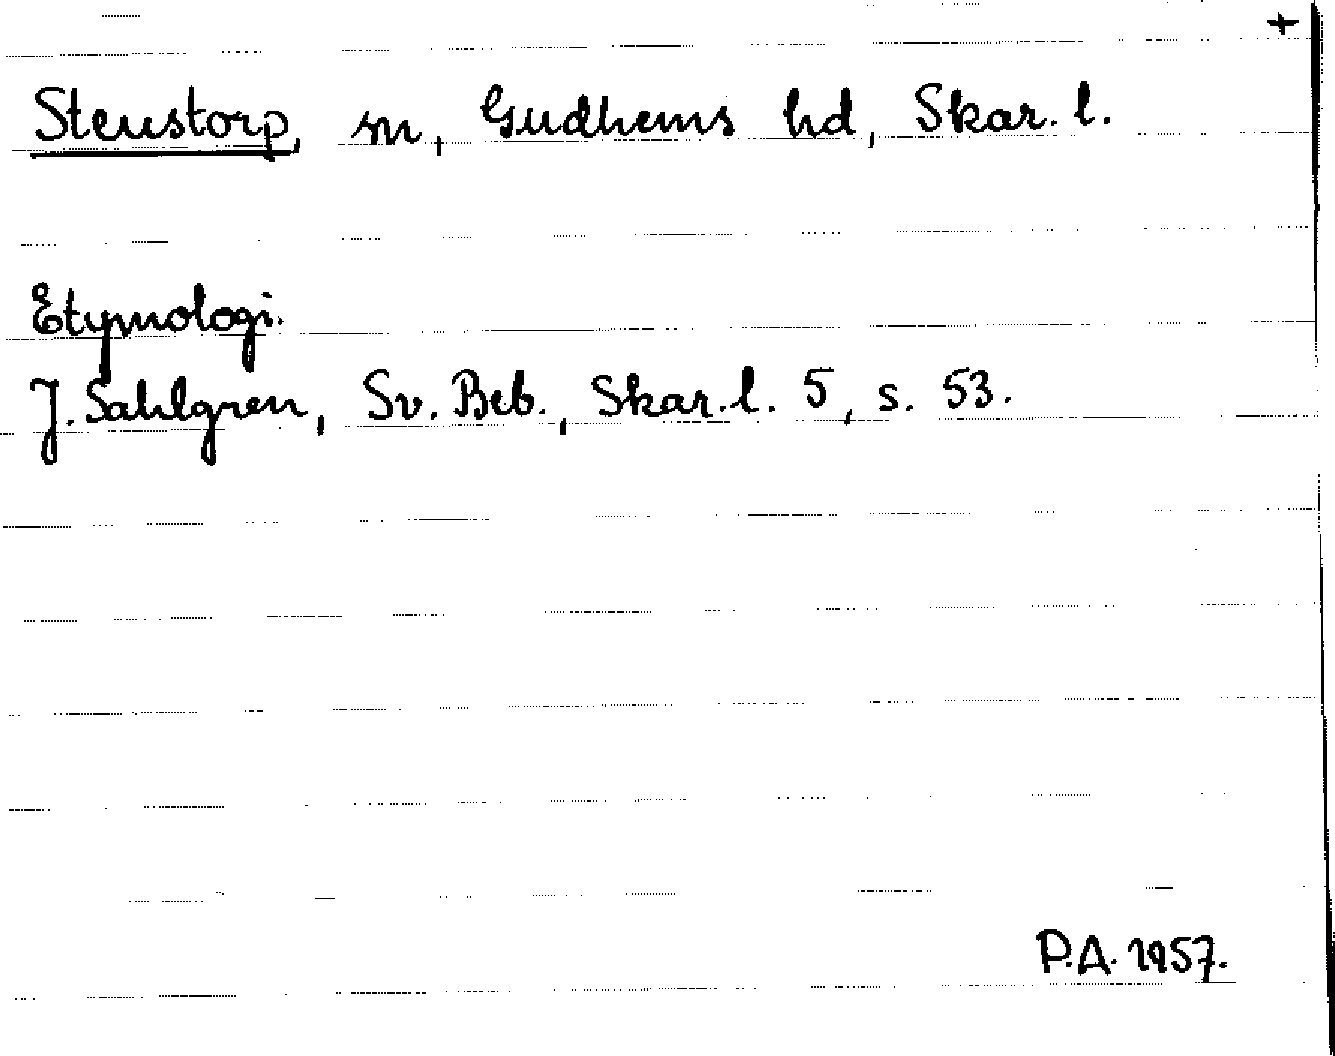 +
Stenstorp, sn, Gudhems hd, Skar. l.
Etymologi.
J. Sahlgren, Sv. Beb., Skar. l. 5, s. 53.
P.A. 1957.